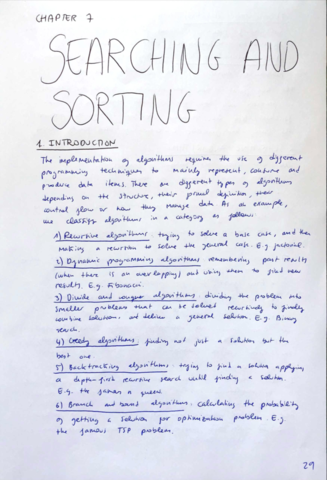 CHAPTER 7
SEARCHING AND
SORTING
1. INTRODUCTION
The implementation of algorithms requires the use of different
programming techniques to mainly represent, consume and
produce data items. There are different types of algorithms
depending on the structure, their formal definition, their
control flow or how they manage data. As an example,
we classify algorithms in a category as follows:
1) Recursive algorithms: trying to solve a base case, and then
making a recursion to solve the general case. E.g. factorial.
2) Dynamic programming algorithms: remembering past results
(when there is an overlapping) and using them to find new
results. E.g. Fibonacci.
3) Divide and conquer algorithms: dividing the problem into
smaller problems that can be solved recursively to finally
combine solutions and deliver a general solution. E.g. Binary
search.
4) Greedy algorithms, finding not just a solution but the
best one.
5) Backtracking algorithms: trying to find a solution applying
a depth-first recursive search until finding a solution.
E.g. the games n queens.
6) Branch and bound algorithms. calculating the probability
of getting a solution for optimization problem. E.g.
the famous TSP problem.
29